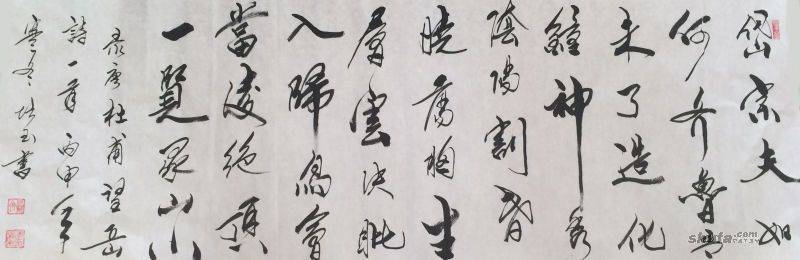 岱宗夫如
何齐鲁青
未了造化
鍾神秀
陰陽割昏
曉荡胸生
層雲決眦
入歸鳥會
當凌絕頂
一覽眾山小
录唐杜甫望岳
詩一首丙申年
寒冬書